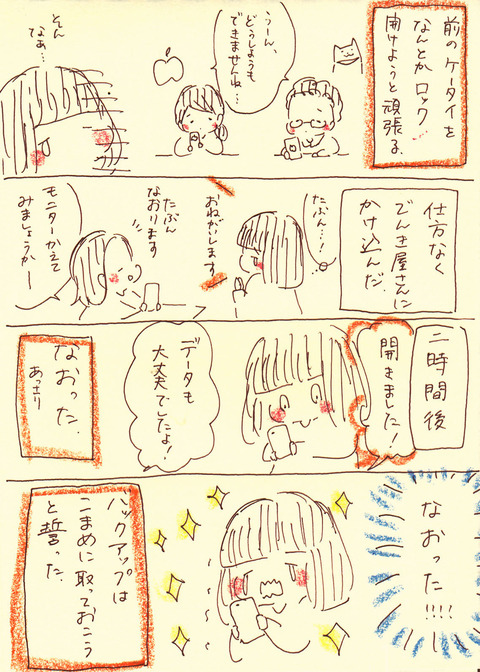 前のケータイを
なんとかロック
開けようと頑張る
うーん、
どうしようも
できませんね…
そん
なぁ…
仕方なく
でんき屋さんに
かけ込んだ
たぶん…!
おねがいします
たぶん
なおります
モニターかえて
みましょうかー
二時間後
開きました!
データも
大丈夫でしたよ!
なおった.
あっさり
なおった!!!!
バックアップは
こまめに取っておこう
と誓った.